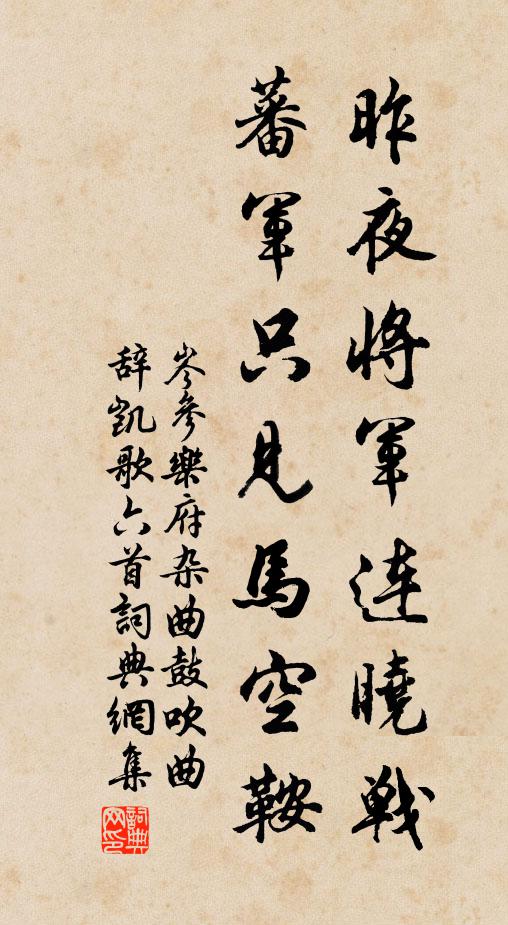 昨夜將軍連曉戰
蕃軍只見馬空鞍
岑參樂府杂曲鼓吹曲
辞凱歌六首詞典網集
詞典网印